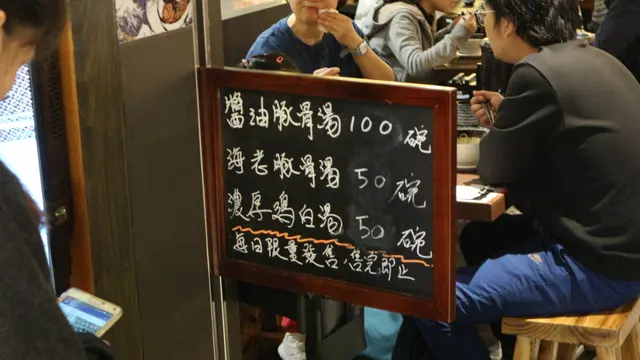 醬油豚骨湯 100 碗
海老豚骨湯 50 碗
濃厚鶏白湯 50 碗
每日限量發售,售完即止